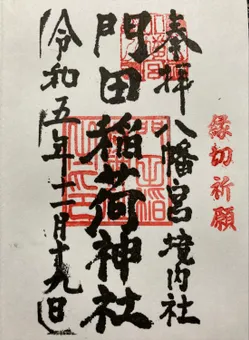 奉拝 八幡宮境内社
縁切祈願
門田稲荷神社
令和五年十二月十九日